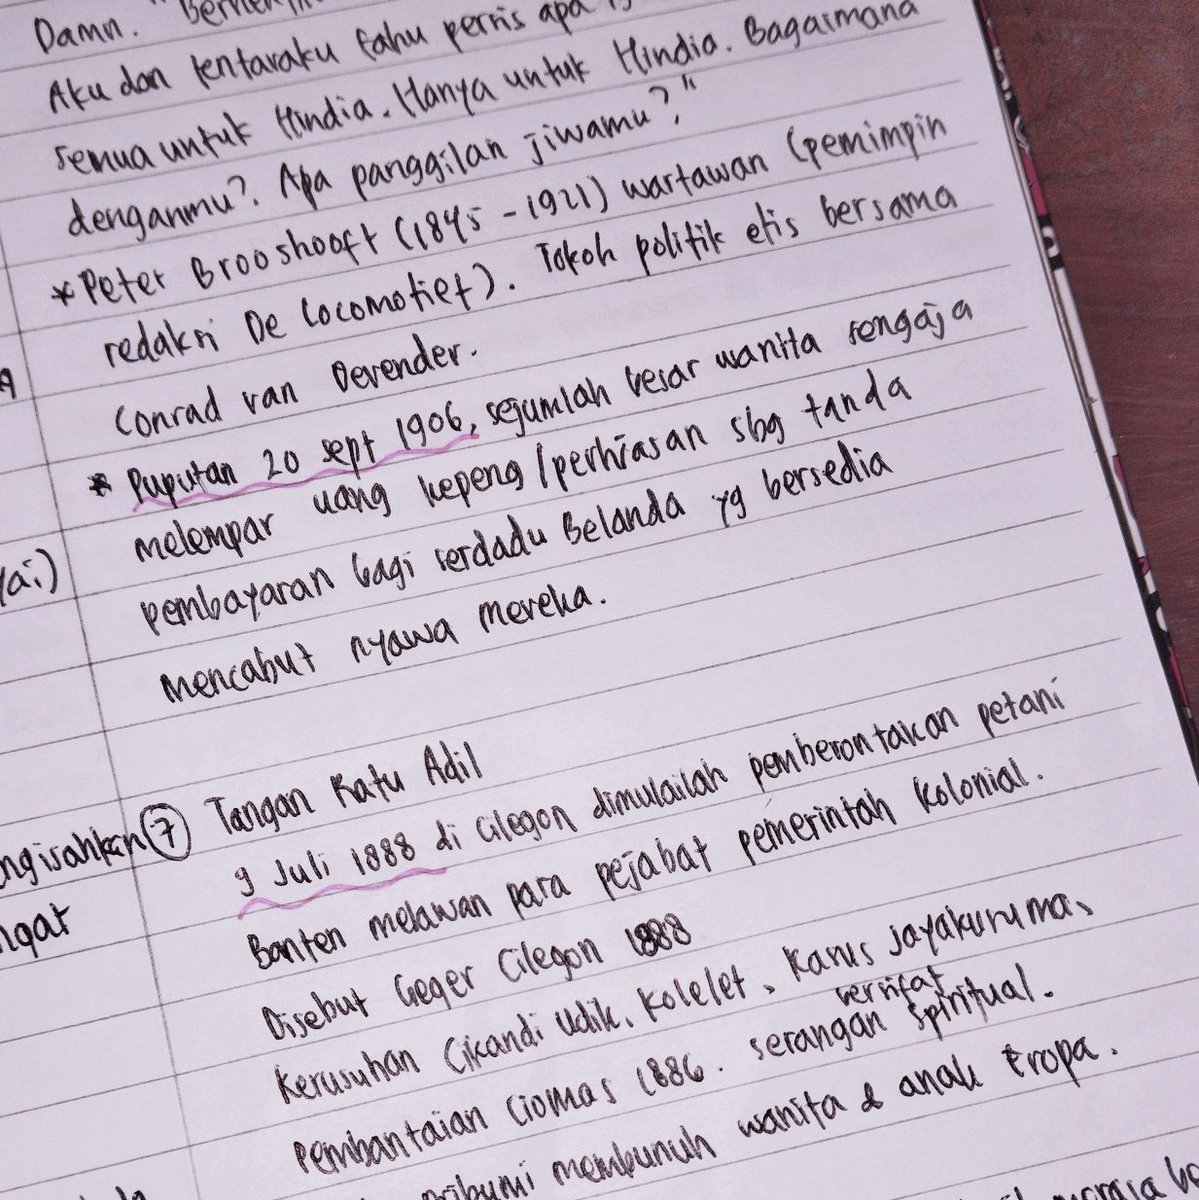 Damn.
Aku dan tentaraku tahu persis apa
semua untuk Hindia. Hanya untuk Hindia. Bagaimana
denganmu? Apa panggilan jiwamu?"
* Peter Brooshooft (1845 - 1921) wartawan (pemimpin
redaksi De Locomotief). Tokoh politik etis bersama
Conrad van Devender.
* Puputan 20 sept 1906, sejumlah besar wanita sengaja
melempar uang kepeng/perhiasan sbg tanda
pembayaran bagi serdadu Belanda yg bersedia
mencabut nyawa mereka.
ngisahkan
ngat
7 Tangan Ratu Adil
9 Juli 1888 di Cilegon dimulailah pemberontakan petani
Banten melawan para pejabat pemerintah kolonial.
Disebut Geger Cilegon 1888
Kerusuhan Cikandi Udik, Kolelet, Kasus Jayakusuma,
Pembantaian Ciomas 1886. serangan bersifat spiritual.
pribumi membunuh wanita & anak Eropa.